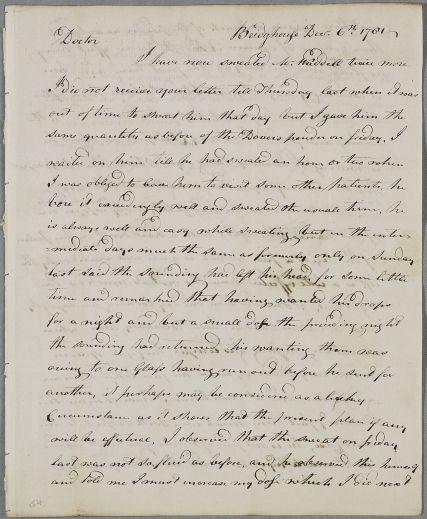 Doctor Dec. 6th. 1781
I have now sweated Mr. Waddell twice more
I did not receive your letter till Thursday last when it was
out of time to sweat him that day but I gave him the
same quantity as before of the Dovers powder on friday. I
waited on him till he had sweated an hour or two when
I was obliged to leave him to visit some other patients. he
bore it exceedingly well and sweated the usuale time, he
is always well and easy while sweating, but in the inter-
mediate days much the same as formerly, only on Sunday
last said the sounding had left his head for some little
time and remarked that having wanted his drops
for a night and but a small dose the preceding night
the sounding had returned, his wanting them was
owing to one Glass having run out before he sent for
another, it perhaps may be considered as a lucky
Circumstance as it shows that the present plan if any
will be effectual, I observed that the sweat on friday
last was not so fluid as before, and he observed this himself
and told me I must increase my dose which I did next